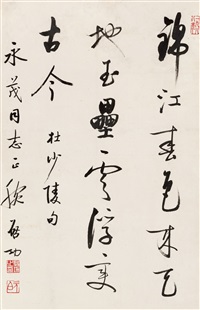 錦江春色来天
地玉壘浮雲變
古今
杜少陵句
永茂同志正腕
啟功